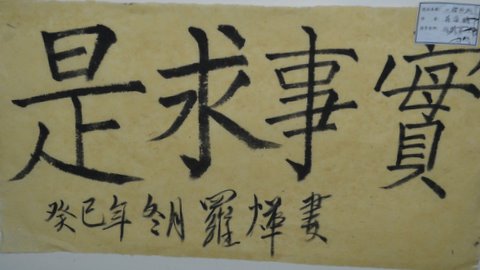 實事求是
癸巳年冬月羅燁書